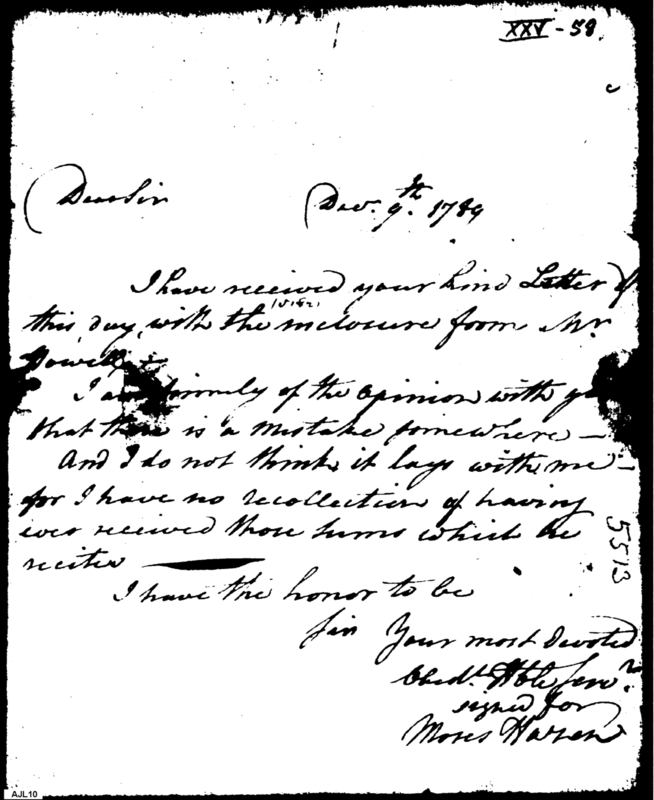 XXV - 58.
Dear Sir
Dec. 9th. 1789
I have received your kind Letter of
this day, with the inclosure from Mr.
Powell
I am firmely of the Opinion with
that there is a Mistake somewhere —
And I do not think it lays with me —
for I have no recollection of having
ever received those sums which he
recites
I have the honor to be
Sir Your most Devoted
Obedt. Hble Serv.
signed for
Moses Hazen
5513
AJL10